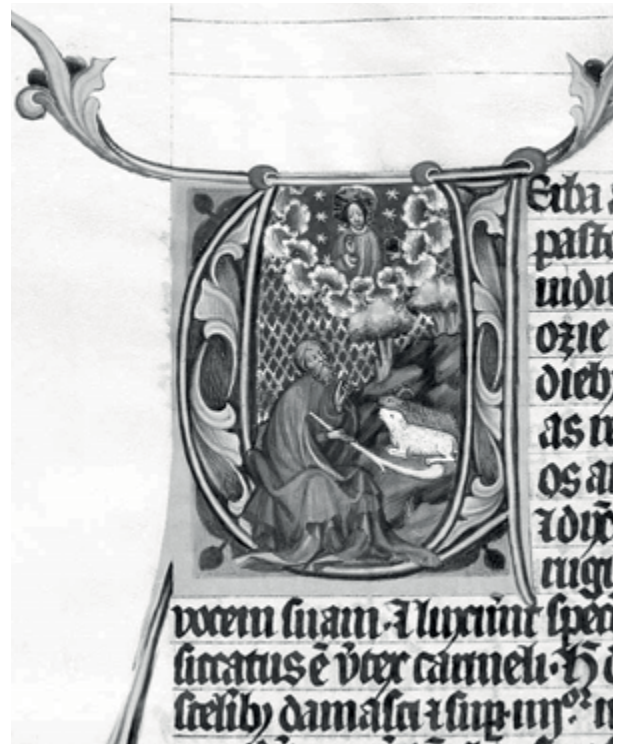 Erba a
pasto
uidit
ozie
dieb
as re
os an
⁊ dix
rugi
vocem suam · ⁊ luxerunt speci
siccatus ē v̄tex carmeli · H̄ d
sceliby damasci ⁊ sup · iiijor n